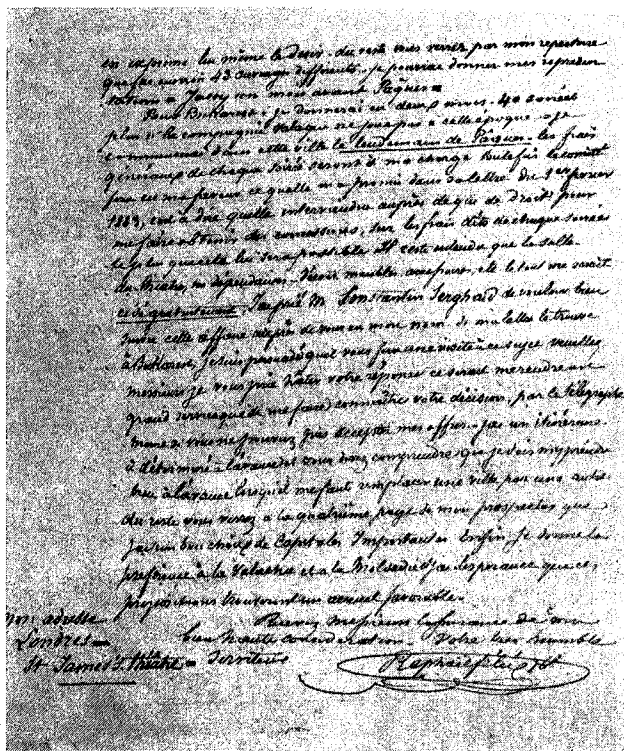 en exprime lui même le desir. du reste vous verrez par mon repertoire
que j'ai environ 43 ouvrages differents. je pourrai donner mes represen
tations a Jassy un mois avant Pâques =
Pour Bukarest. je donnerai en deux mois. 40 soirées
plus si la compagnie Valaque ne joue pas a cette époque. je
commencerai dans cette ville le lendemain de Pâques. les frais
généraux de chaque soirée seront à ma charge toutefois le comité
fera en ma faveur ce qu'elle m'a promis dans sa lettre du 1er fevrier
1863, c'est à dire qu'elle interviendra auprès de qui de Droit pour
me faire obtenir des concessions, sur les frais dits de chaque soirée
le plus qu'elle lui sera possible. Il reste entendu que la salle
du théâtre, ses dépendances. décors meubles accessoires, etc le tout me serait
cédé gratuitement. J'ai prié M. Constantin Serghiad de vouloir bien
suivre cette affaire auprès de vous en mon nom
à Bukarest, je suis persuadé qu'il vous fera une visite à ce sujet veuillez
messieurs je vous prie hâter votre réponse ce serait me rendre un
grand service que de me faire connaître votre décision, par le télégraphe
même si vous ne pouvez pas accepter mes offres. j'ai un itinéraire
à déterminer à l'avance et vous devez comprendre que je dois m'y prendre
bien à l'avance lorsqu'il me faut remplacer une ville par une autre.
du reste vous verrez a la quatrième page de mon prospectus que
j'ai un bon choix de Capitales Importantes Enfin, je donne la
préférence à la Valachie et a la Moldavie j'ai l'esperance que ces
propositions trouveront un accueil favorable.
Recevez Messieurs l'assurance de ma
bien haute consideration. Votre bien humble
serviteur
Raphael Felix
mon adresse
Londres =
St James's théâtre =